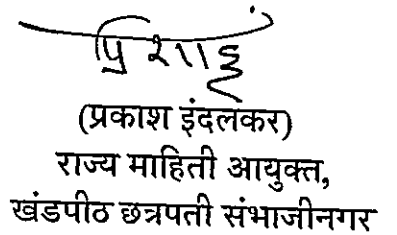 (प्रकाश इंदलकर)
राज्य माहिती आयुक्त,
खंडपीठ छत्रपती संभाजीनगर